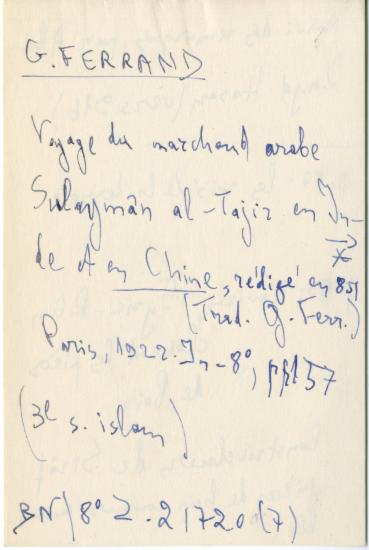 G. FERRAND
Voyage du marchand arabe
Sulaymân al-Tajir en In-
de et en Chine, rédigé en 851
(Trad. G. Ferr.)
Paris, 1922. In-8º, pp 157
(3e s. islam)
BN/8º Z. 21720 (7)